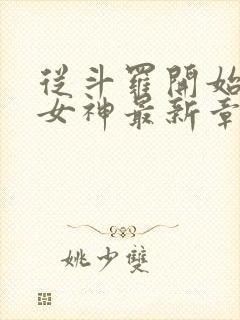 從斗羅開始
女神最新章
姚少雙